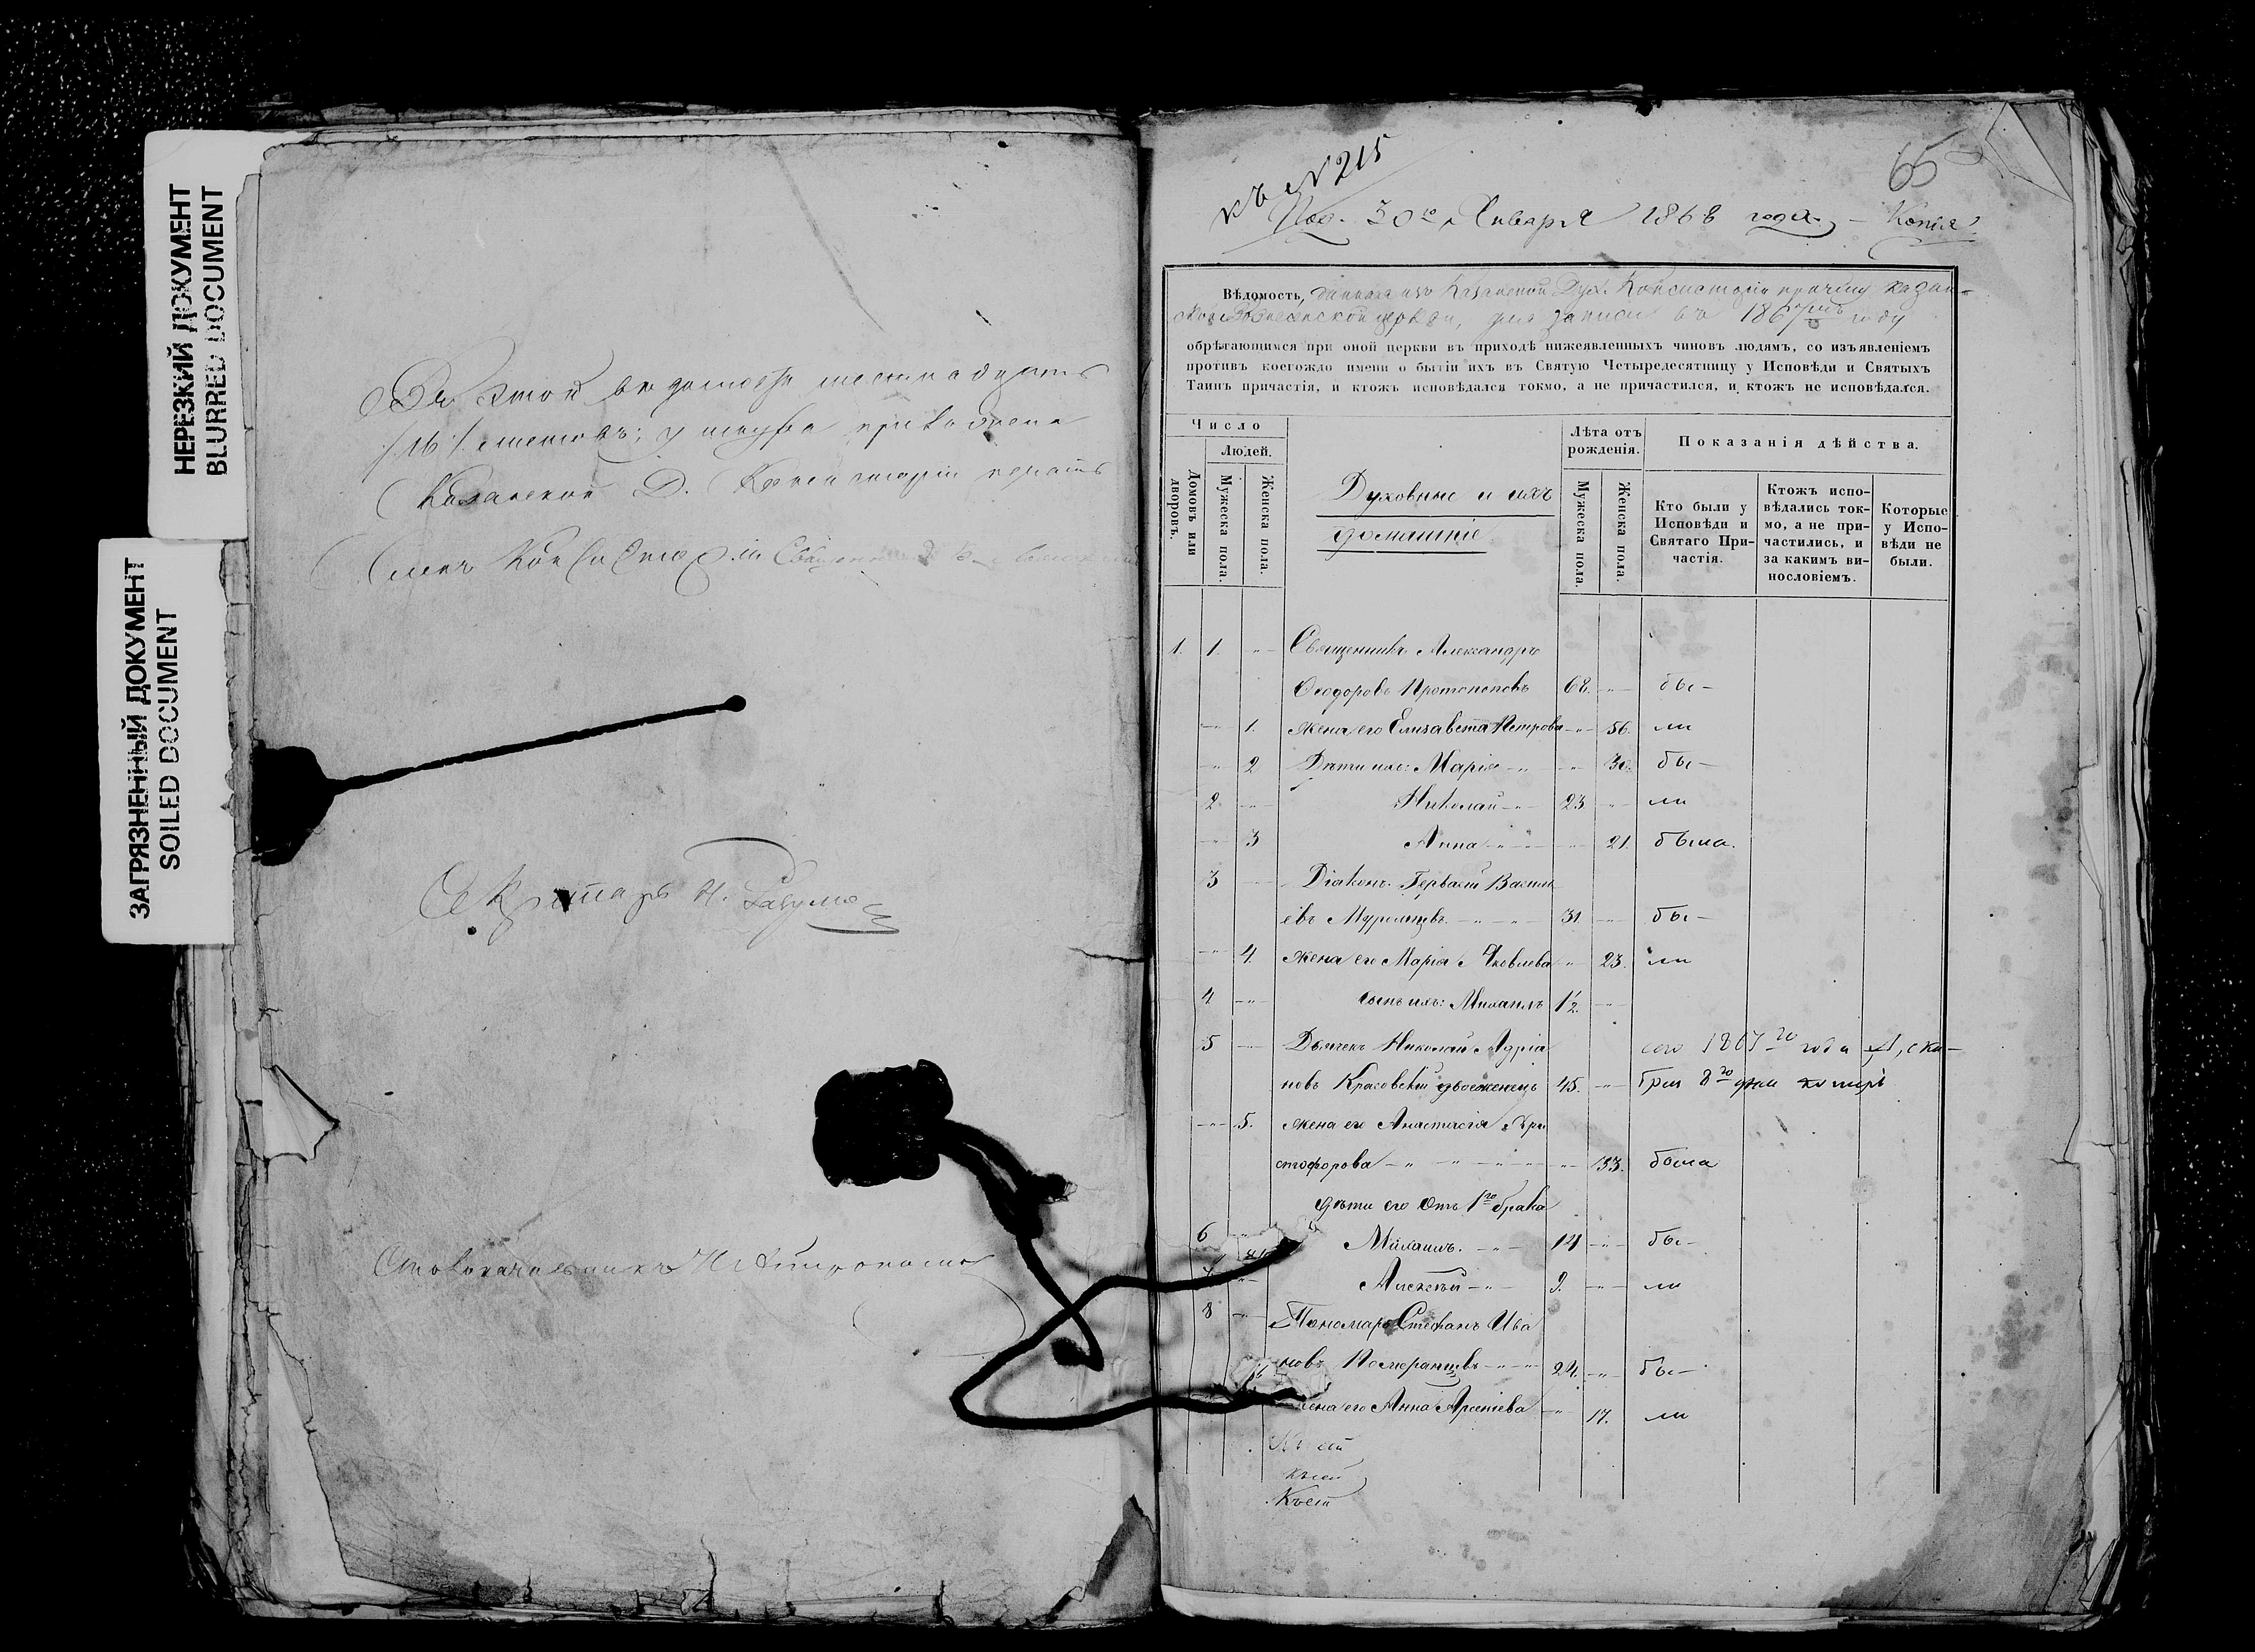 НЕРЕЗКИЙ ДОКУМЕНТ
BLURRED DOCUMENT
ЗАГРЯЗНЕННЫЙ ДОКУМЕНТ
SOILED DOCUMENT
Въ этой ведомости шестнадцать
/16/ листовъ; у шнура приложена
Казанской Д. Консисторіи печать
Членъ Консисторіи Священникъ
Секретарь Н.
Столоначальникъ
65
къ №215
30го Января 1868 года. — Копія
Вѣдомость, данная изъ Казанской Дух. Консисторіи причту Казан-
ской Вознесенской церкви, для записи въ 1867мъ году
обрѣтающимся при оной церкви въ приходѣ нижеявленныхъ чиновъ людямъ, со изъявленіемъ
противъ коегождо имени о бытіи ихъ въ Святую Четыредесятницу у Исповѣди и Святыхъ
Таинъ причастія, и ктожъ исповѣдался токмо, а не причастился, и ктожъ не исповѣдался.
Число
Людей.
Домовъ или дворовъ.
Мужеска пола.
Женска пола.
Духовные и ихъ
домашніе.
Лѣта отъ рожденія.
Мужеска пола.
Женска пола.
Показанія дѣйства.
Кто были у Исповѣди и Святаго При- частія.
Ктожъ испо- вѣдались ток- мо, а не при- частились, и за какимъ ви- нословіемъ.
Которые у Испо- вѣди не были.
1. 1. -"- Священникъ Александръ
Ѳеодоровъ Протопоповъ 68. -"- бы-
-"- 1. жена его Елизавета Петрова -"- 56. ли
-"- 2 Дѣти ихъ: Марія -"- -"- 30. бы-
2 -"- Николай -"- 23 -"- ли
-"- 3 Анна -"- -"- 21. была.
3 -"- Діаконъ Гервасій Васил
евъ Мурзинцевъ. -"- -"- 31. -"- бы-
-"- 4. жена его Марія Яковлева -"- 23. ли
4 -"- сынъ ихъ: Михаилъ 1½. -"-
5 -"- Дьячекъ Николай Адріа
новъ Красовскій двоеженецъ 45. -"-
сего 1867го года Дека-
бря 8го дня померъ
-"- 5. жена его Анастасія Хри
стофорова -"- -"- -"- 33. была
дѣти его отъ 1го брака
6 -"- Михаилъ. -"- 14 -"- бы-
-"- Алексѣй -"- 9. -"- ли
8 -"- Пономарь Стефанъ Ива
новъ Померанцевъ -"- 24. -"- бы-
жена его Анна Арсеніева -"- 17. ли
Къ сей
къ сей
Къ сей